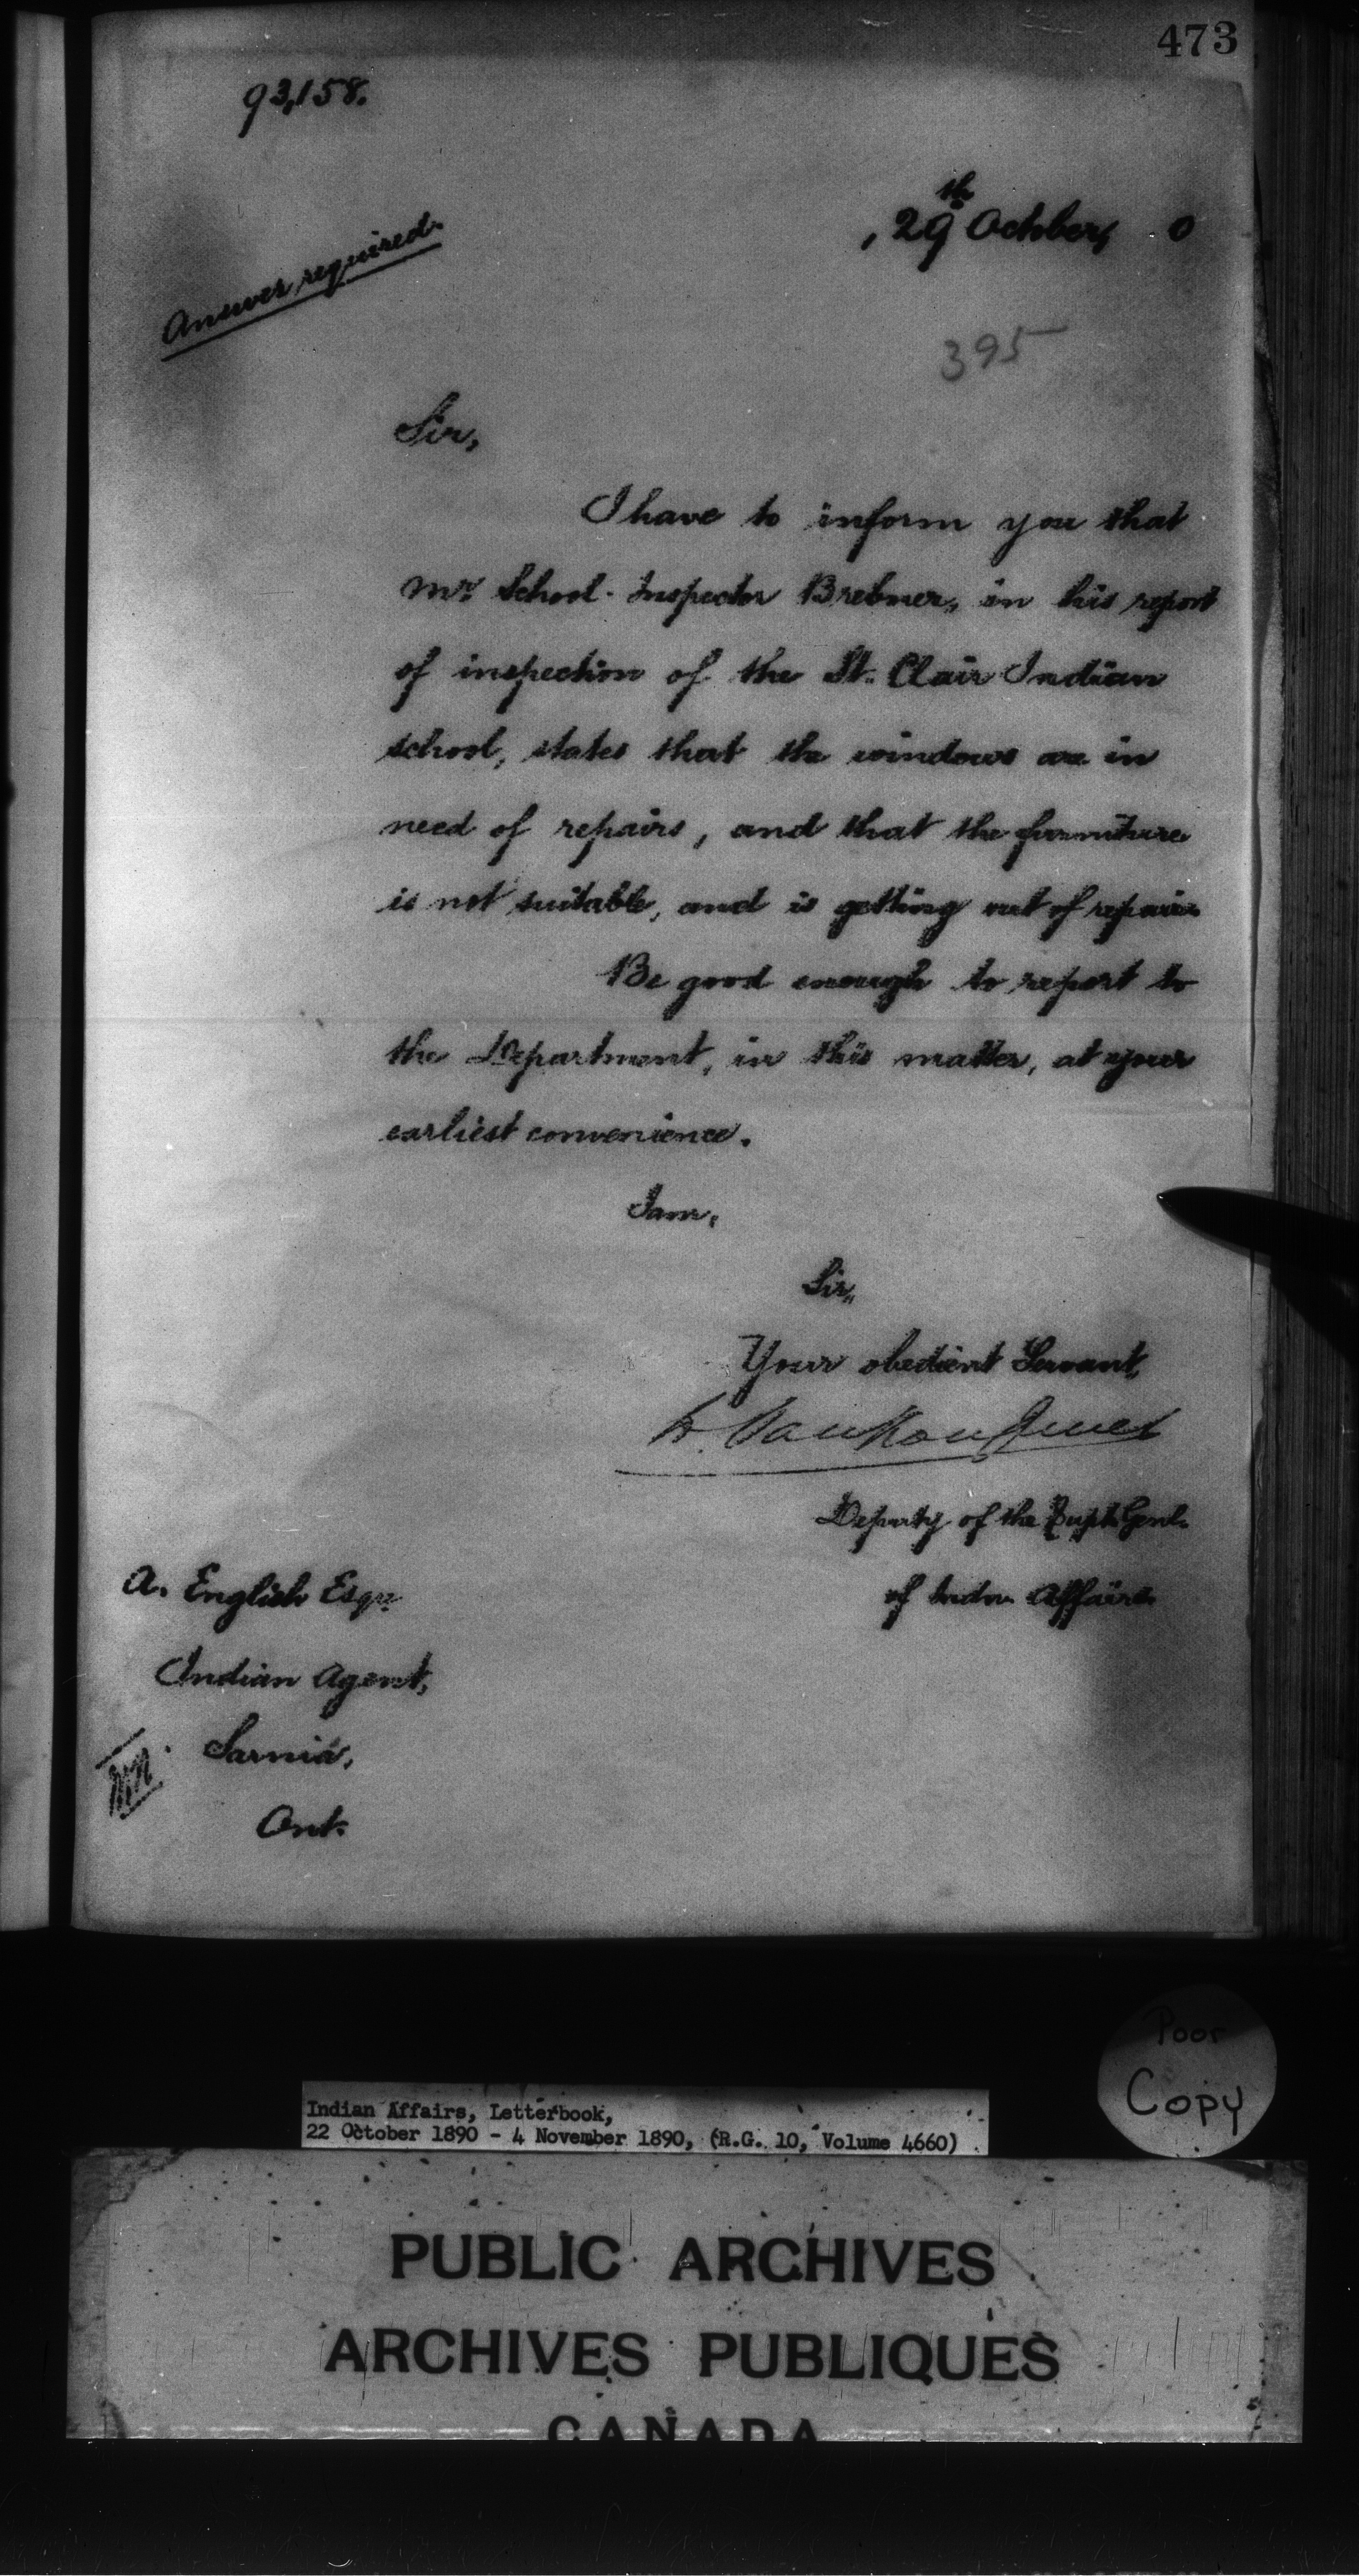 473
93,158.
, 29th October, 0
Answer required.
395
Sir,
I have to inform you that
Mr. School-Inspector Brebner, in his report
of inspection of the St. Clair Indian
school, states that the windows are in
need of repairs, and that the furniture
is not suitable, and is getting out of repair.
Be good enough to report to
the Department, in this matter, at your
earliest convenience.
I am,
Sir,
Your obedient Servant,
L. VanKoughnet
Deputy of the Supt. Genl.
of Indn. Affairs.
A. English Esqre.
Indian Agent,
Sarnia,
Ont.
Poor
Copy
Indian Affairs, Letterbook,
22 October 1890 - 4 November 1890, (R.G. 10, Volume 4660)
PUBLIC ARCHIVES
ARCHIVES PUBLIQUES
CANADA